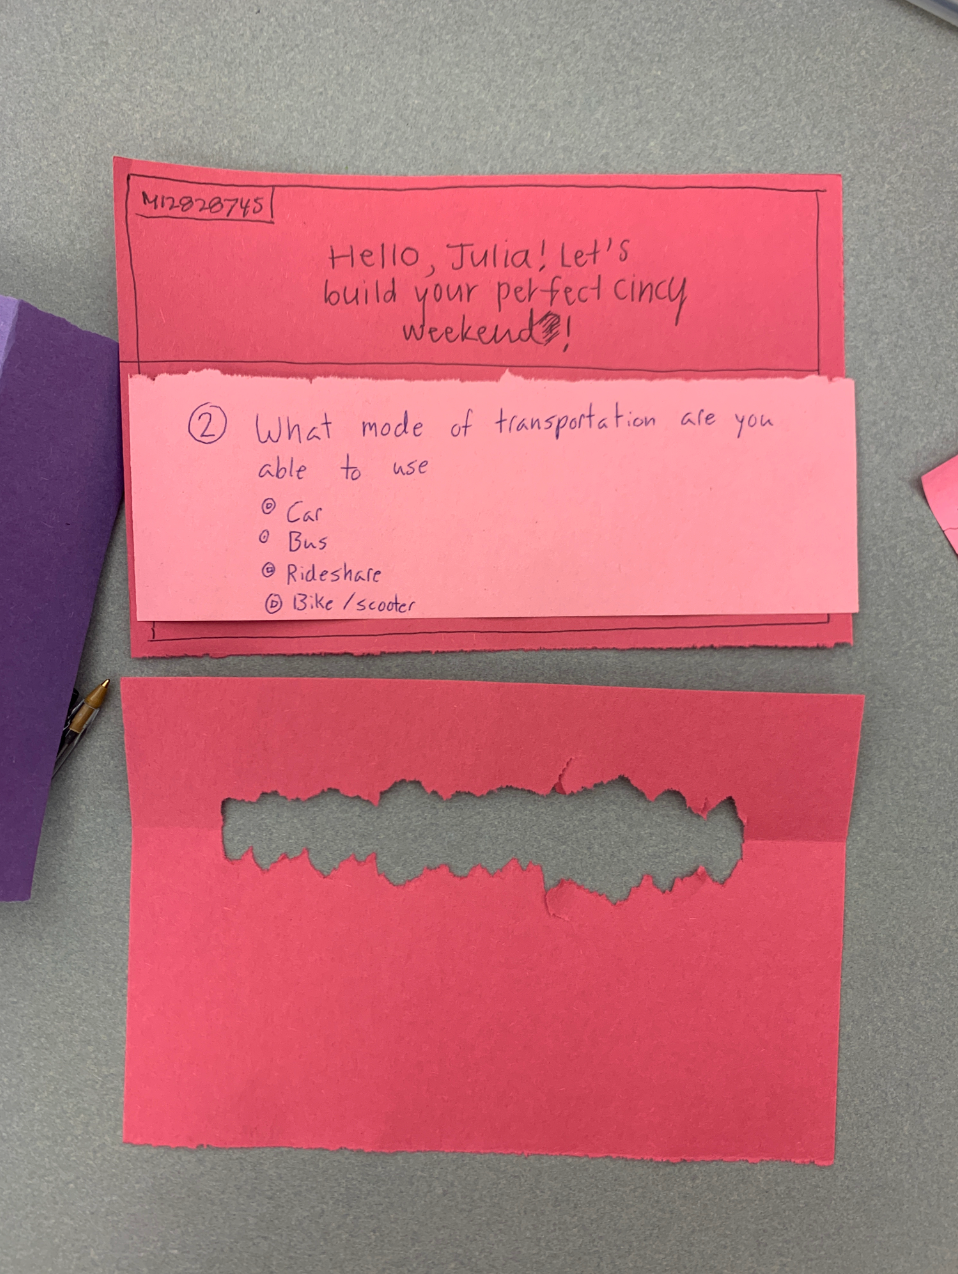 M12828745
Hello, Julia! Let's
build your perfect cincy
weekend!
2 What mode of transportation are you
able to use
Car
Bus
Rideshare
Bike/scooter